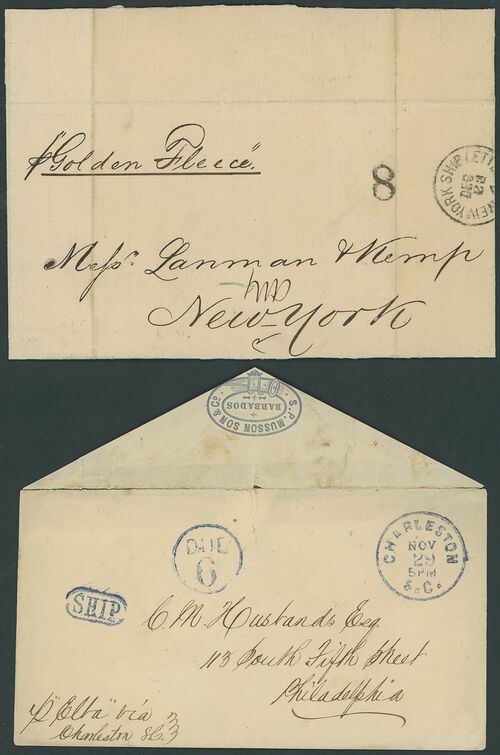 p "Golden Fleece".
8
NEW YORK SHIP LETT
Messrs. Lanman & Kemp
New-York
S.P. MUSSON SON & Co.
BARBADOS
DUE
6
CHARLESTON
NOV
29
5PM
S.C.
SHIP
C. M. Husbands Esq.
113 South Fifth Street
Philadelphia
p "Elba" via
Charleston S.C.